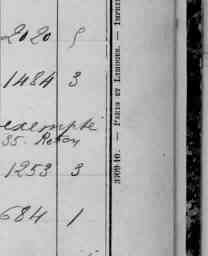 2020 5
1484 3
exempté
35.
1253 3
684 1
3709-10. — PARIS ET LIMOGES. — IMPRI